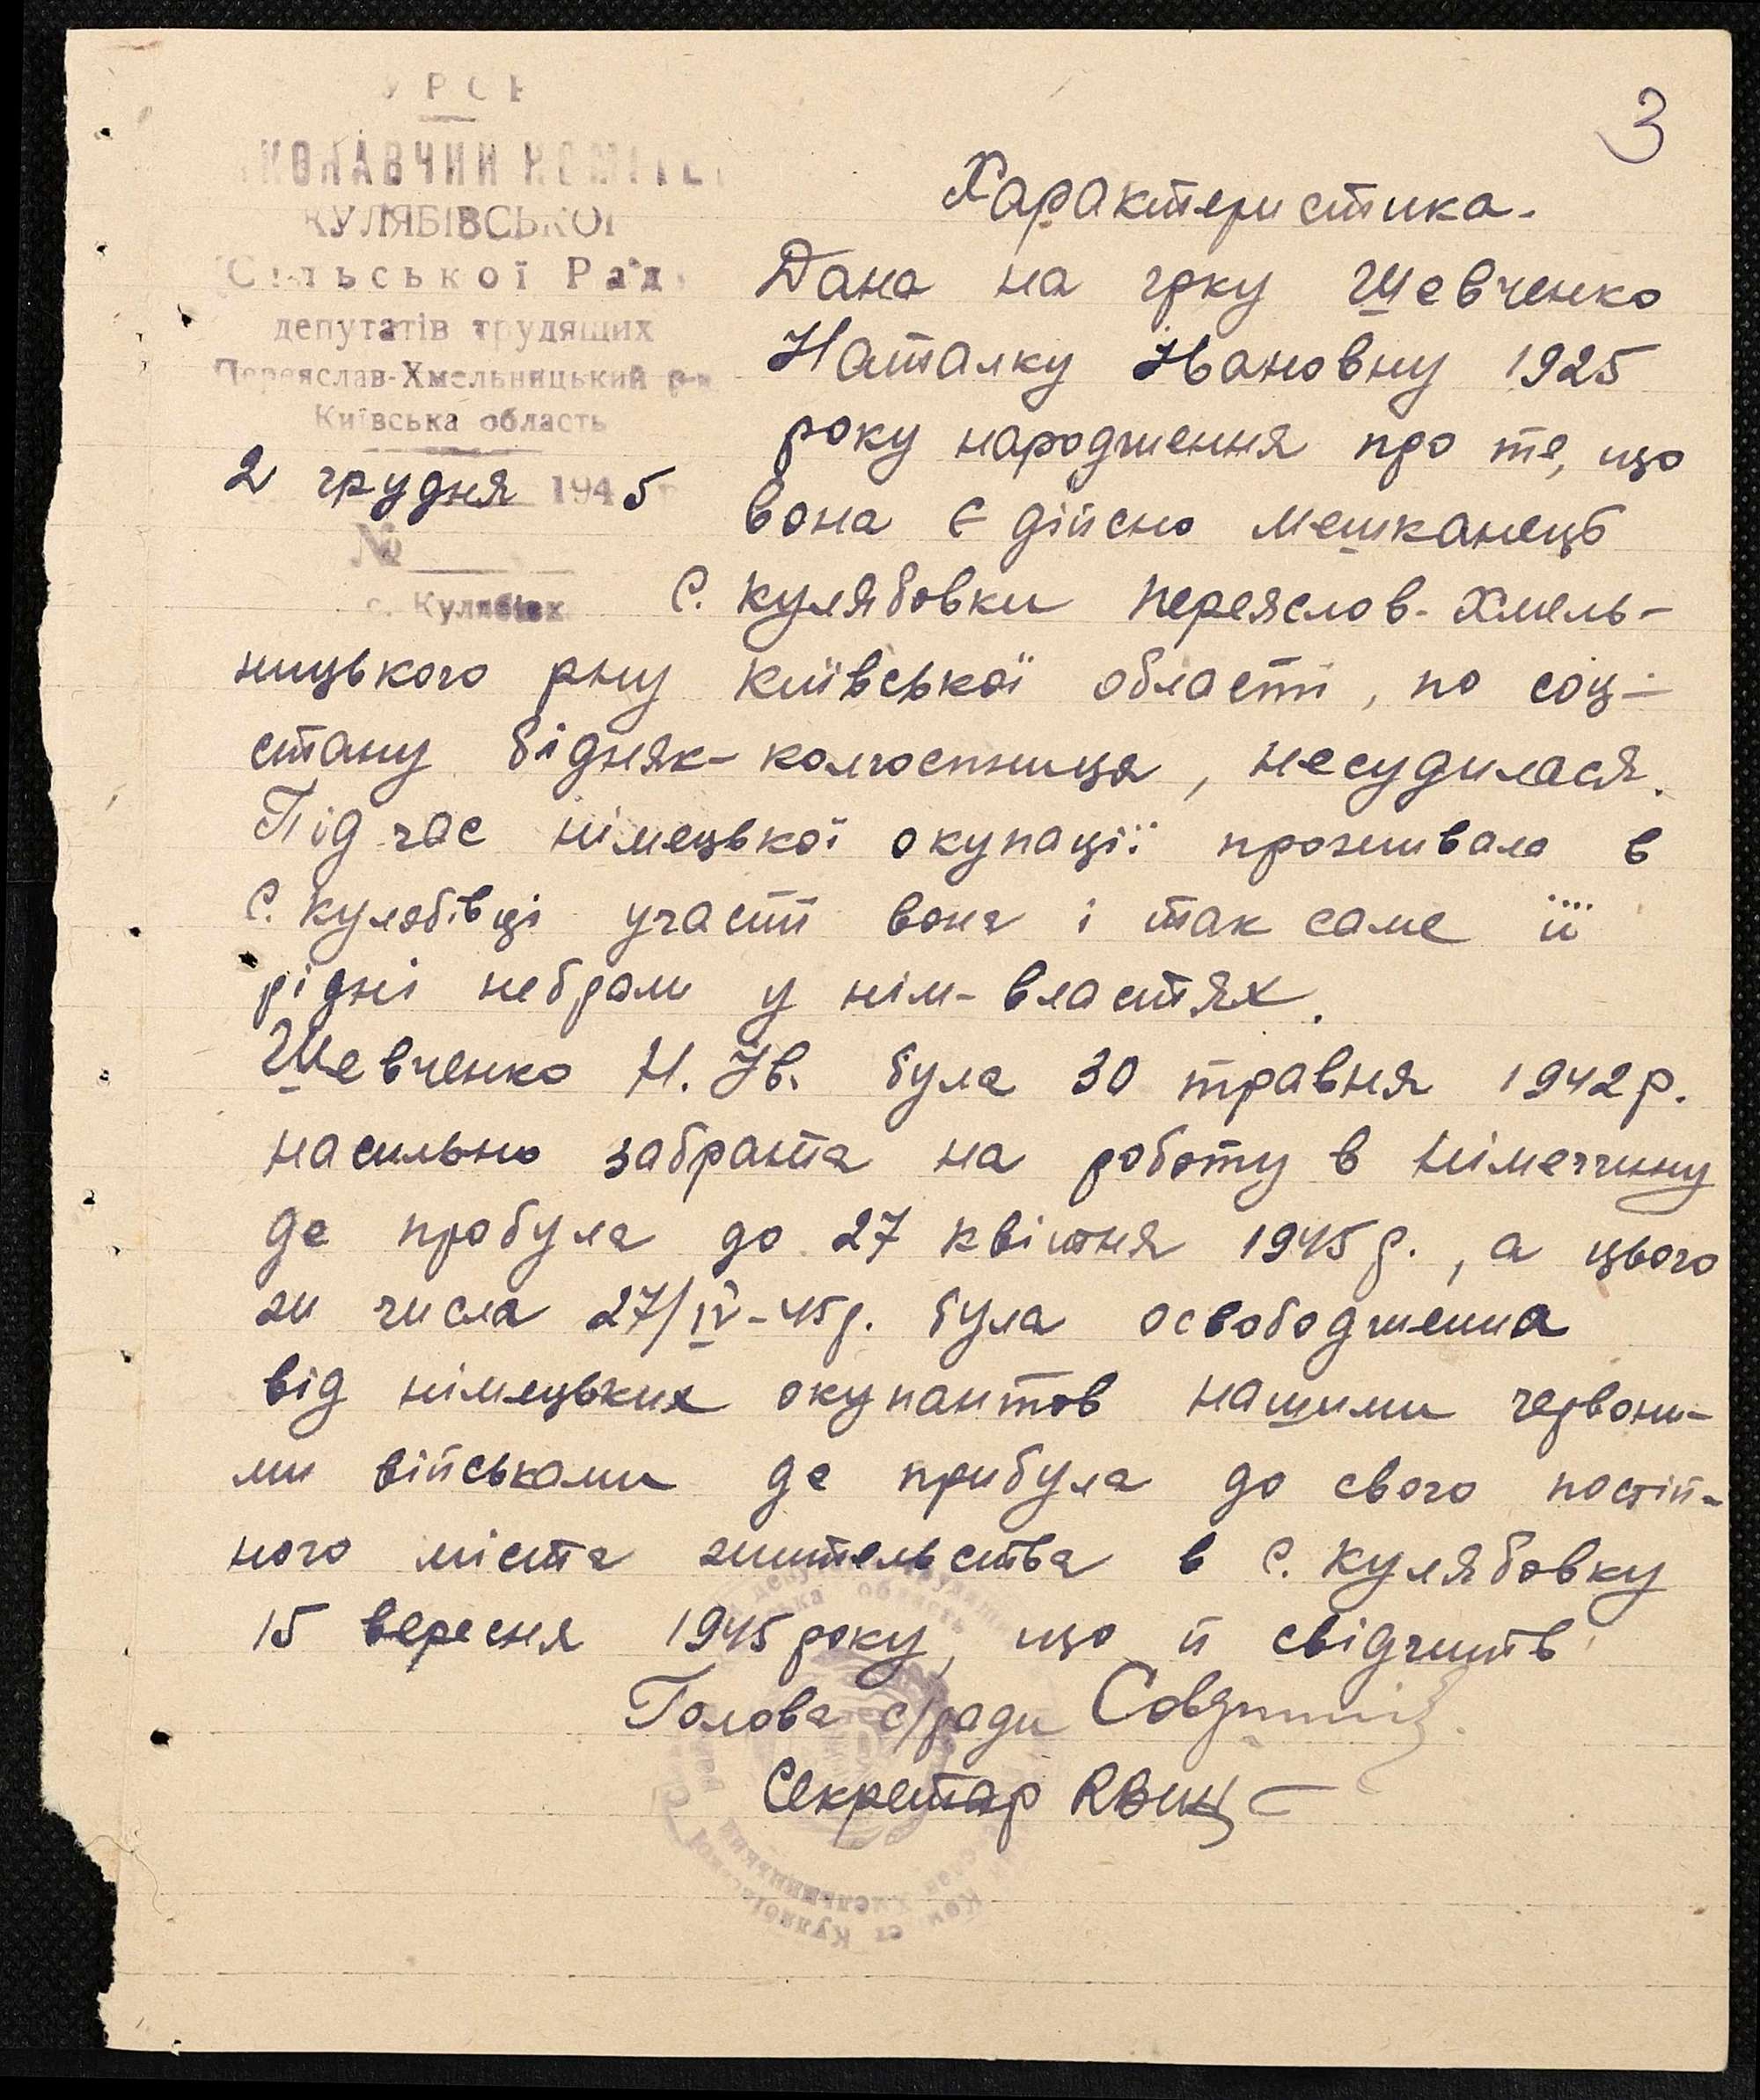 3
УРСР
ВИКОНАВЧИЙ КОМІТЕТ
КУЛЯБІВСЬКОЇ
Сільської Ради
депутатів трудящих
Переяслав-Хмельницький р-н
Київська область
2 грудня 1945 р
№
с. Кулябівка
Характеристика.
Дана на грку Шевченко
Наталку Івановну 1925
року народження про те, що
вона є дійсно мешканець
С. Кулябовки Переяслов-Хмель-
ницького рну Київської області, по соц-
стану бідняк-колгоспниця, несудилася.
Під час німецької окупації проживала в
С. Кулябівці участі вона і так саме її
рідні небрали у нім-властях.
Шевченко Н. Ів. була 30 травня 1942 р.
насильно забрата на роботу в Німеччину
де пробула до 27 квітня 1945 р., а цього
ж числа 27/IV-45 р. була освободженна
від німецьких окупантов нашими червони-
ми військами де прибула до свого постій-
ного міста жительства в с. Кулябовку
15 вересня 1945 року, що й свідчить
Голова с/ради
Секретар